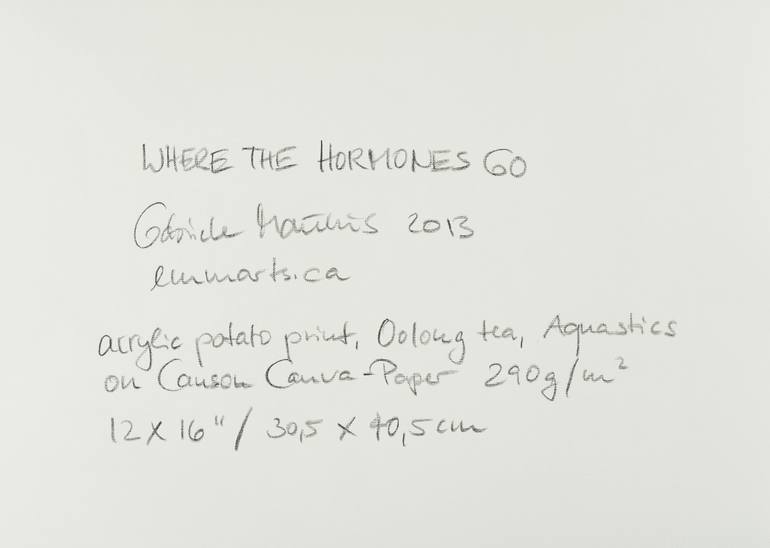 WHERE THE HORMONES GO
Gabriele 2013
emmarts.ca
acrylic potato print, Oolong tea, Aquastics
on Canson Canva-Paper 290g/m²
12 x 16"/ 30,5 x 40,5 cm